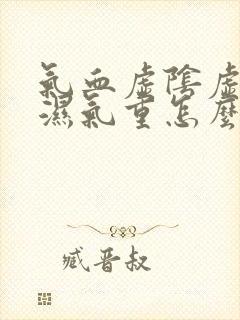 氣血虛陰虛
濕氣重怎麼
臧晋叔